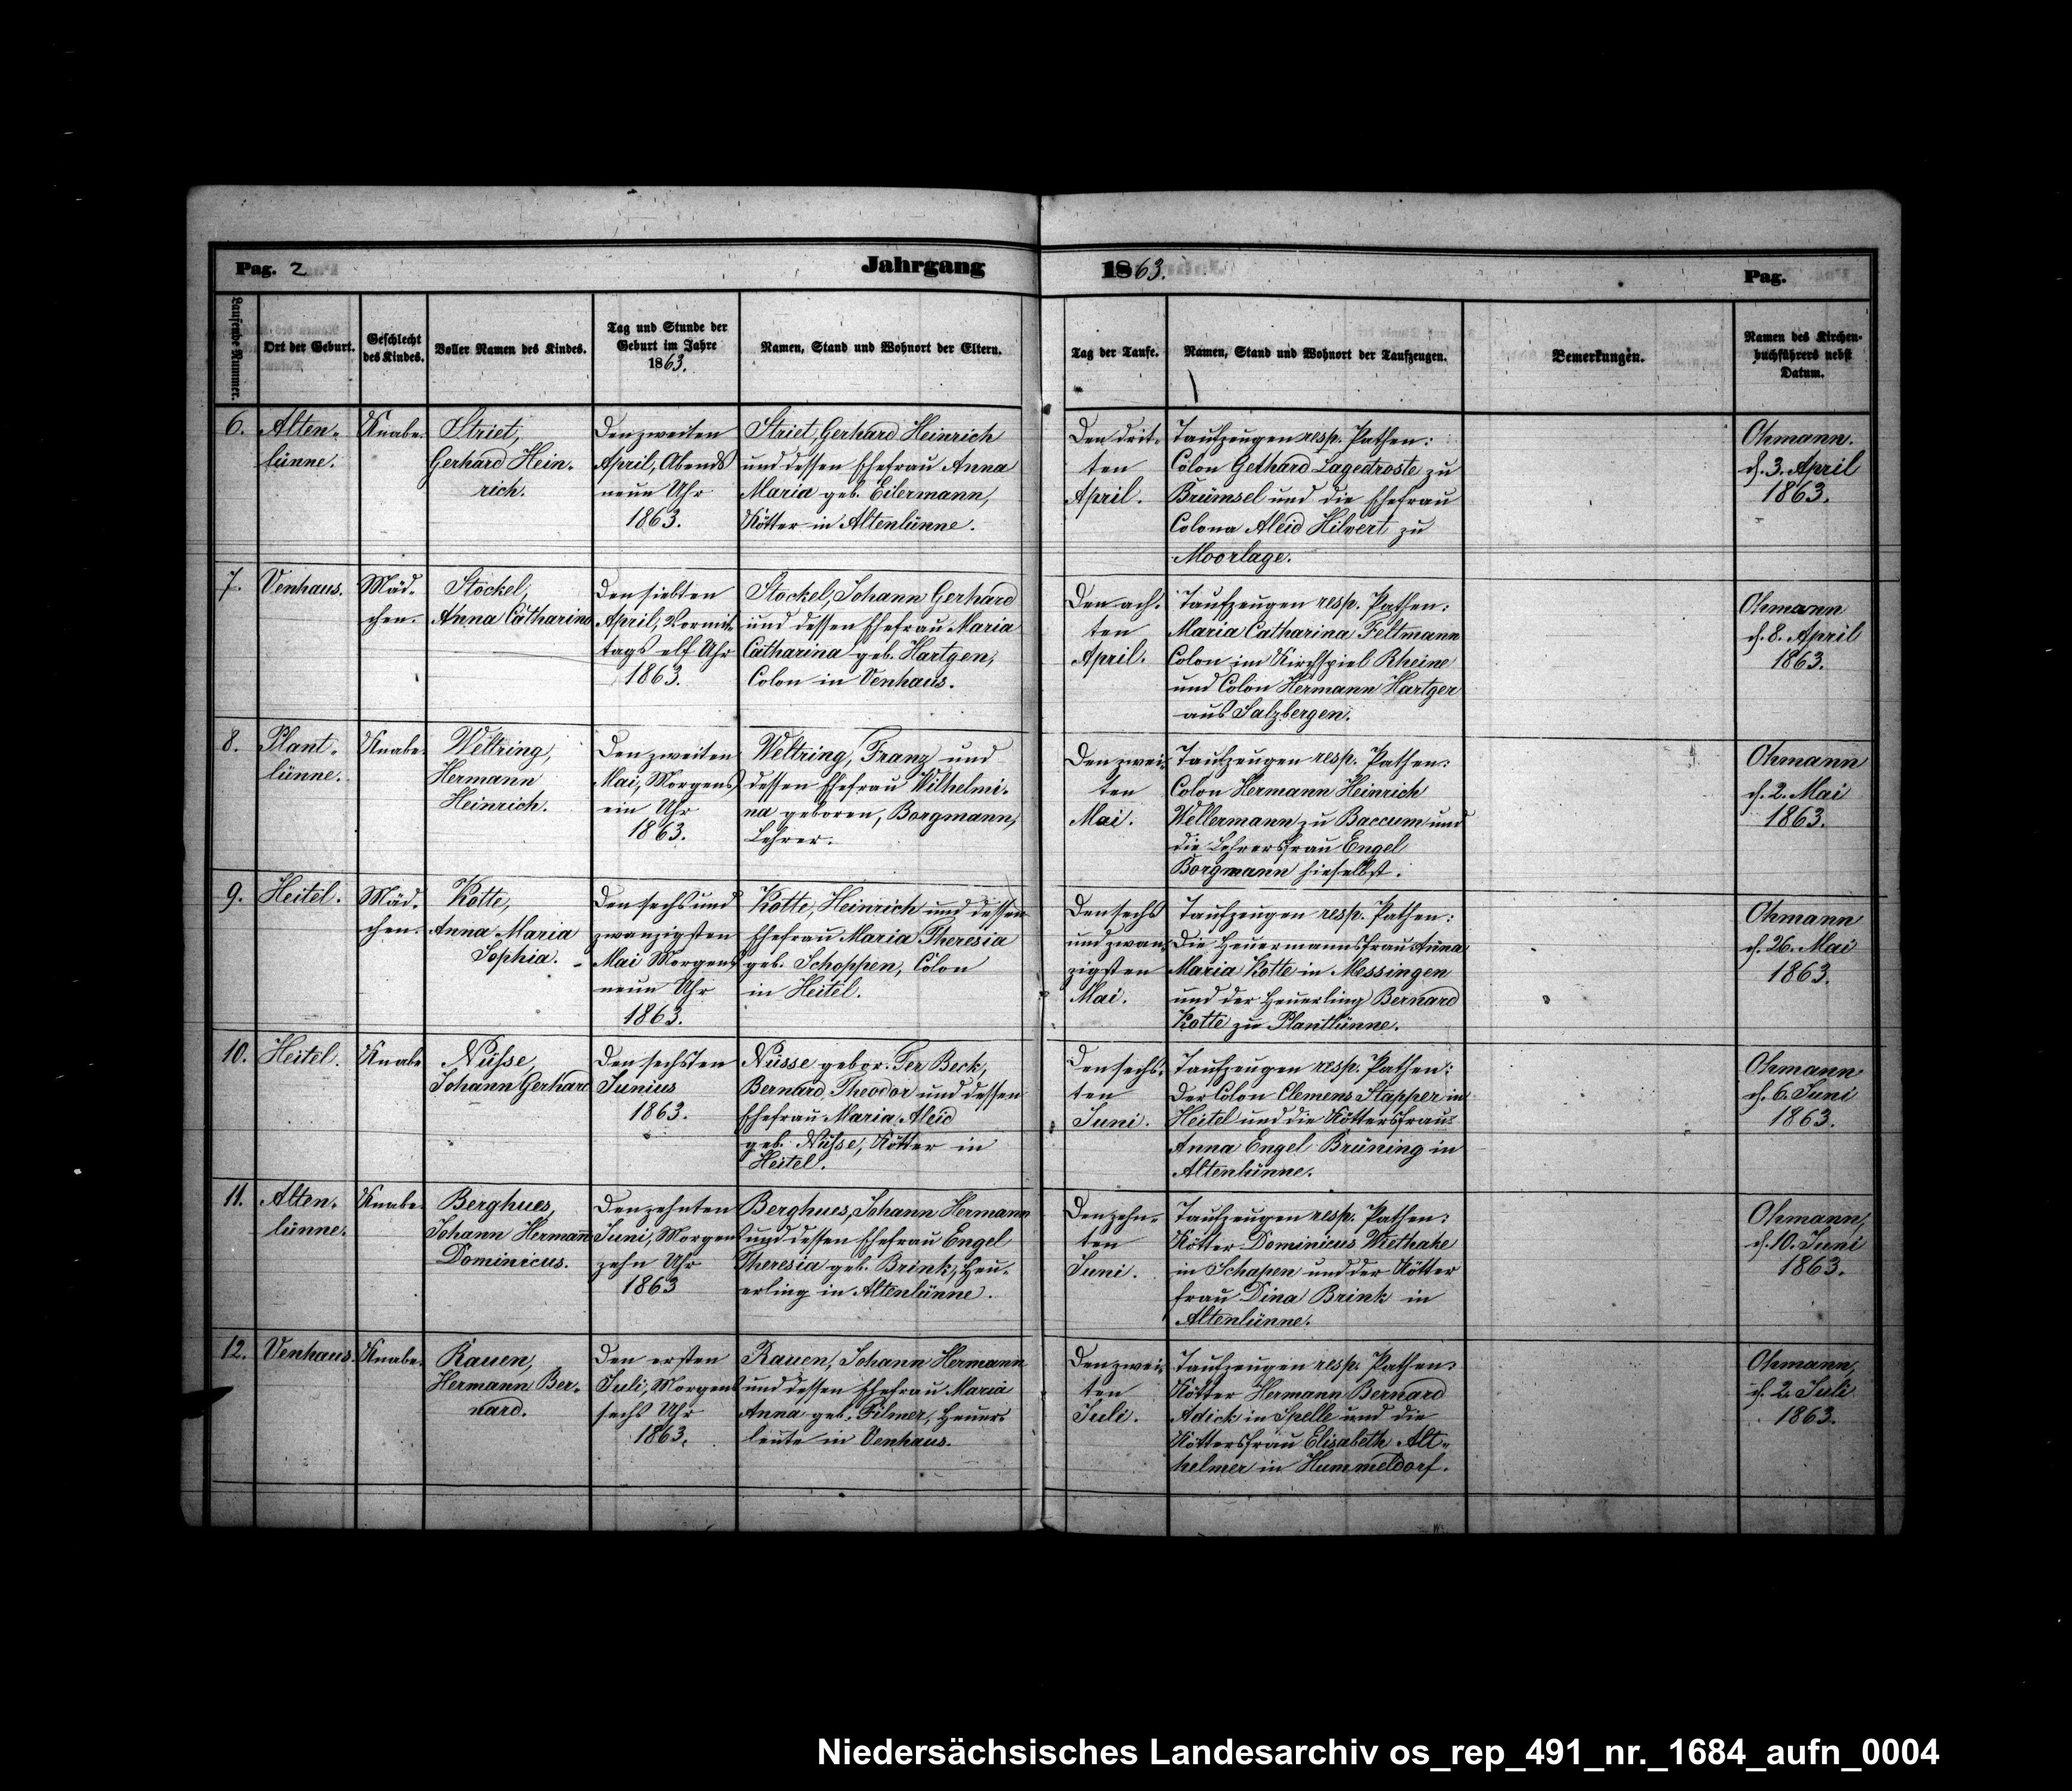 Pag. 2
Jahrgang
1863.
Pag.
Laufende Nummer.
Ort der Geburt.
Geschlecht
des Kindes.
Voller Namen des Kindes.
Tag und Stunde der
Geburt im Jahre
1863.
Namen, Stand und Wohnort der Eltern.
Tag der Taufe.
Namen, Stand und Wohnort der Taufzeugen.
Bemerkungen.
Namen des Kirchen-
buchführers nebst
Datum.
6.
Alten-
lünne.
Knabe.
Striet,
Gerhard Hein-
rich.
Den zweiten
April, Abends
neun Uhr
1863.
Striet, Gerhard Heinrich
und dessen Ehefrau Anna
Maria geb. Eilermann,
Kötter in Altenlünne.
Den drit-
ten
April.
Taufzeugen resp. Pathen:
Colon Gethard Lagedroste zu
Brümsel und die Ehefrau
Colona Aleid Hilvert zu
Moorlage.
Ohmann.
d. 3. April
1863.
7.
Venhaus.
Mäd-
chen.
Stockel,
Anna Catharina
Den siebten
April, Vormit-
tags elf Uhr
1863.
Stockel, Johann Gerhard
und dessen Ehefrau Maria
Catharina geb. Hartgen,
Colon in Venhaus.
Den ach-
ten
April.
Taufzeugen resp. Pathen:
Maria Catharina Feltmann
Colon im Kirchspiel Rheine
und Colon Hermann Hartger
aus Salzbergen.
Ohmann
d. 8. April
1863.
8.
Plant-
lünne.
Knabe.
Weltring,
Hermann
Heinrich.
Den zweiten
Mai, Morgens
ein Uhr
1863.
Weltring, Franz und
dessen Ehefrau Wilhelmi-
na geboren, Borgmann,
Lehrer.
Den zwei-
ten
Mai.
Taufzeugen resp. Pathen:
Colon Hermann Heinrich
Wellermann zu Baccum und
die Lehrersfrau Engel
Borgmann hieselbst.
Ohmann
d. 2. Mai
1863.
9.
Heitel.
Mäd-
chen.
Kotte,
Anna Maria
Sophia.
Den sechs und
zwanzigsten
Mai Morgens
neun Uhr
1863.
Kotte, Heinrich und dessen
Ehefrau Maria Theresia
geb. Schoppen, Colon
in Heitel.
Den sechs
und zwan-
zigsten
Mai.
Taufzeugen resp. Pathen:
Die Heuermannsfrau Anna
Maria Kotte in Messingen
und der Heuerling Bernard
Kotte zu Plantlünne.
Ohmann
d. 26. Mai
1863.
10.
Heitel.
Knabe
Nüsse,
Johann Gerhard
Den sechsten
Junius
1863.
Nüsse gebor. Ter Beck,
Bernard Theodor und dessen
Ehefrau Maria Aleid
geb. Nüsse, Kötter in
Heitel.
Den sechs-
ten
Juni.
Taufzeugen resp. Pathen:
Der Colon Clemens Stapper in
Heitel und die Köttersfrau
Anna Engel Brüning in
Altenlünne.
Ohmann
d. 6. Juni
1863.
11.
Alten-
lünne.
Knabe.
Berghues,
Johann Hermann
Dominicus.
Den zehnten
Juni, Morgens
zehn Uhr
1863
Berghues, Johann Hermann
und dessen Ehefrau Engel
Theresia geb. Brink, Heu-
erling in Altenlünne.
Den zehn-
ten
Juni.
Taufzeugen resp. Pathen:
Kötter Dominicus Wiethake
in Schapen und der Kötter
frau Dina Brink in
Altenlünne.
Ohmann,
d. 10. Juni
1863.
12.
Venhaus.
Knabe.
Rauen,
Hermann Ber-
nard.
Den ersten
Juli, Morgens
sechs Uhr
1863.
Rauen, Johann Hermann
und dessen Ehefrau Maria
Anna geb. Filmer, Heuer-
leute in Venhaus.
Den zwei-
ten
Juli.
Taufzeugen resp. Pathen:
Kötter Hermann Bernard
Adick in Spelle und die
Köttersfrau Elisabeth Alt-
helmer in Hummeldorf.
Ohmann,
d. 2. Juli
1863.
Niedersächsisches Landesarchiv os_rep_491_nr._1684_aufn_0004